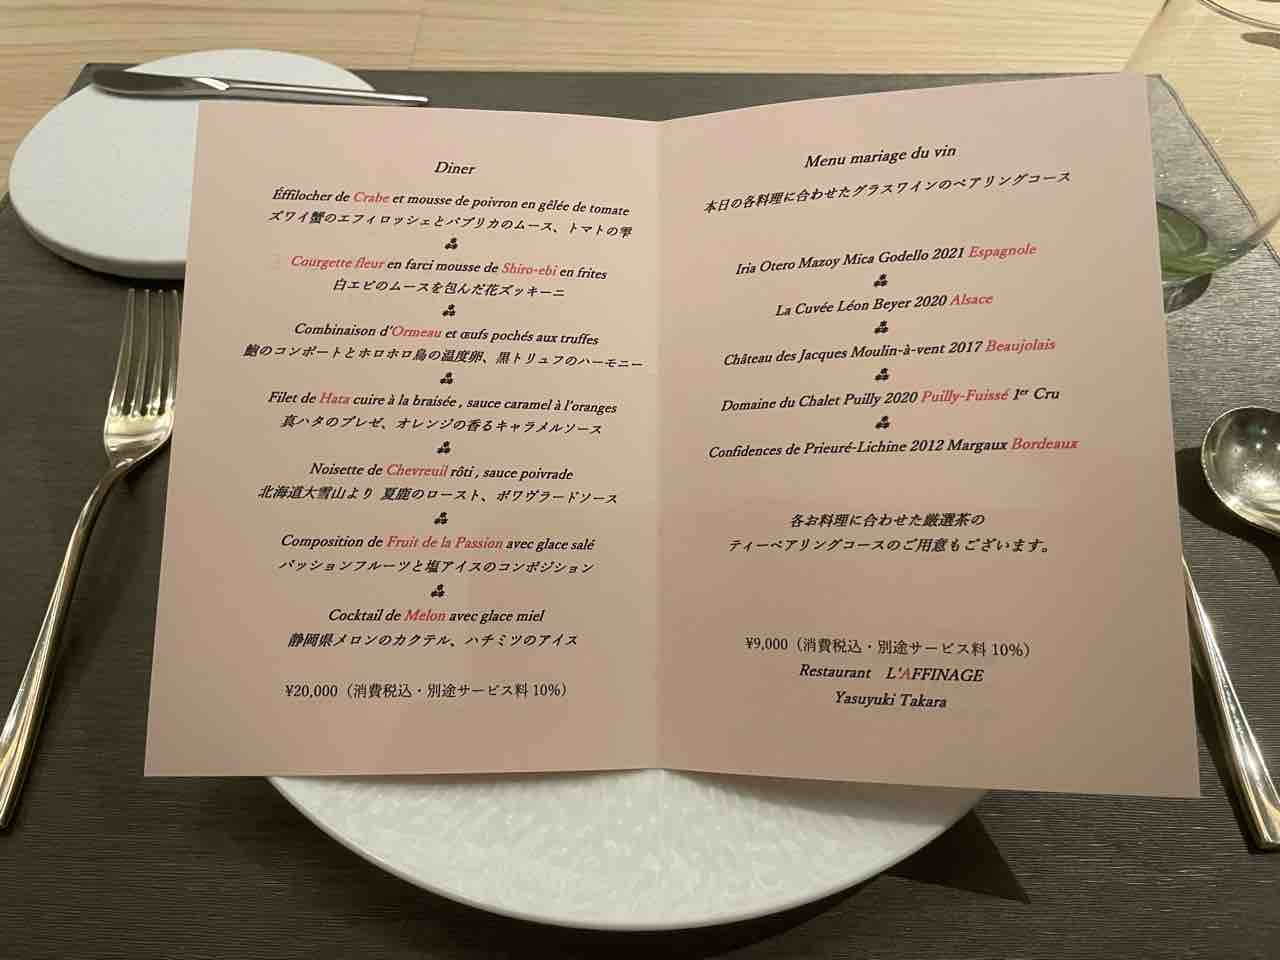 Diner
Éffilocher de Crabe et mousse de poivron en gêlée de tomate
ズワイ蟹のエフィロッシェとパプリカのムース、トマトの雫
Courgette fleur en farci mousse de Shiro-ebi en frites
白エビのムースを包んだ花ズッキーニ
Combinaison d'Ormeau et œufs pochés aux truffes
鮑のコンポートとホロホロ鳥の温度卵、黒トリュフのハーモニー
Filet de Hata cuire à la braisée , sauce caramel à l'oranges
真ハタのブレゼ、オレンジの香るキャラメルソース
Noisette de Chevreuil rôti , sauce poivrade
北海道大雪山より 夏鹿のロースト、ポワヴラードソース
Composition de Fruit de la Passion avec glace salé
パッションフルーツと塩アイスのコンポジション
Cocktail de Melon avec glace miel
静岡県メロンのカクテル、ハチミツのアイス
¥20,000（消費税込・別途サービス料 10%）
Menu mariage du vin
本日の各料理に合わせたグラスワインのペアリングコース
Iria Otero Mazoy Mica Godello 2021 Espagnole
La Cuvée Léon Beyer 2020 Alsace
Château des Jacques Moulin-à-vent 2017 Beaujolais
Domaine du Chalet Puilly 2020 Puilly-Fuissé 1er Cru
Confidences de Prieuré-Lichine 2012 Margaux Bordeaux
各お料理に合わせた厳選茶の
ティーペアリングコースのご用意もございます。
¥9,000（消費税込・別途サービス料 10%）
Restaurant L'AFFINAGE
Yasuyuki Takara